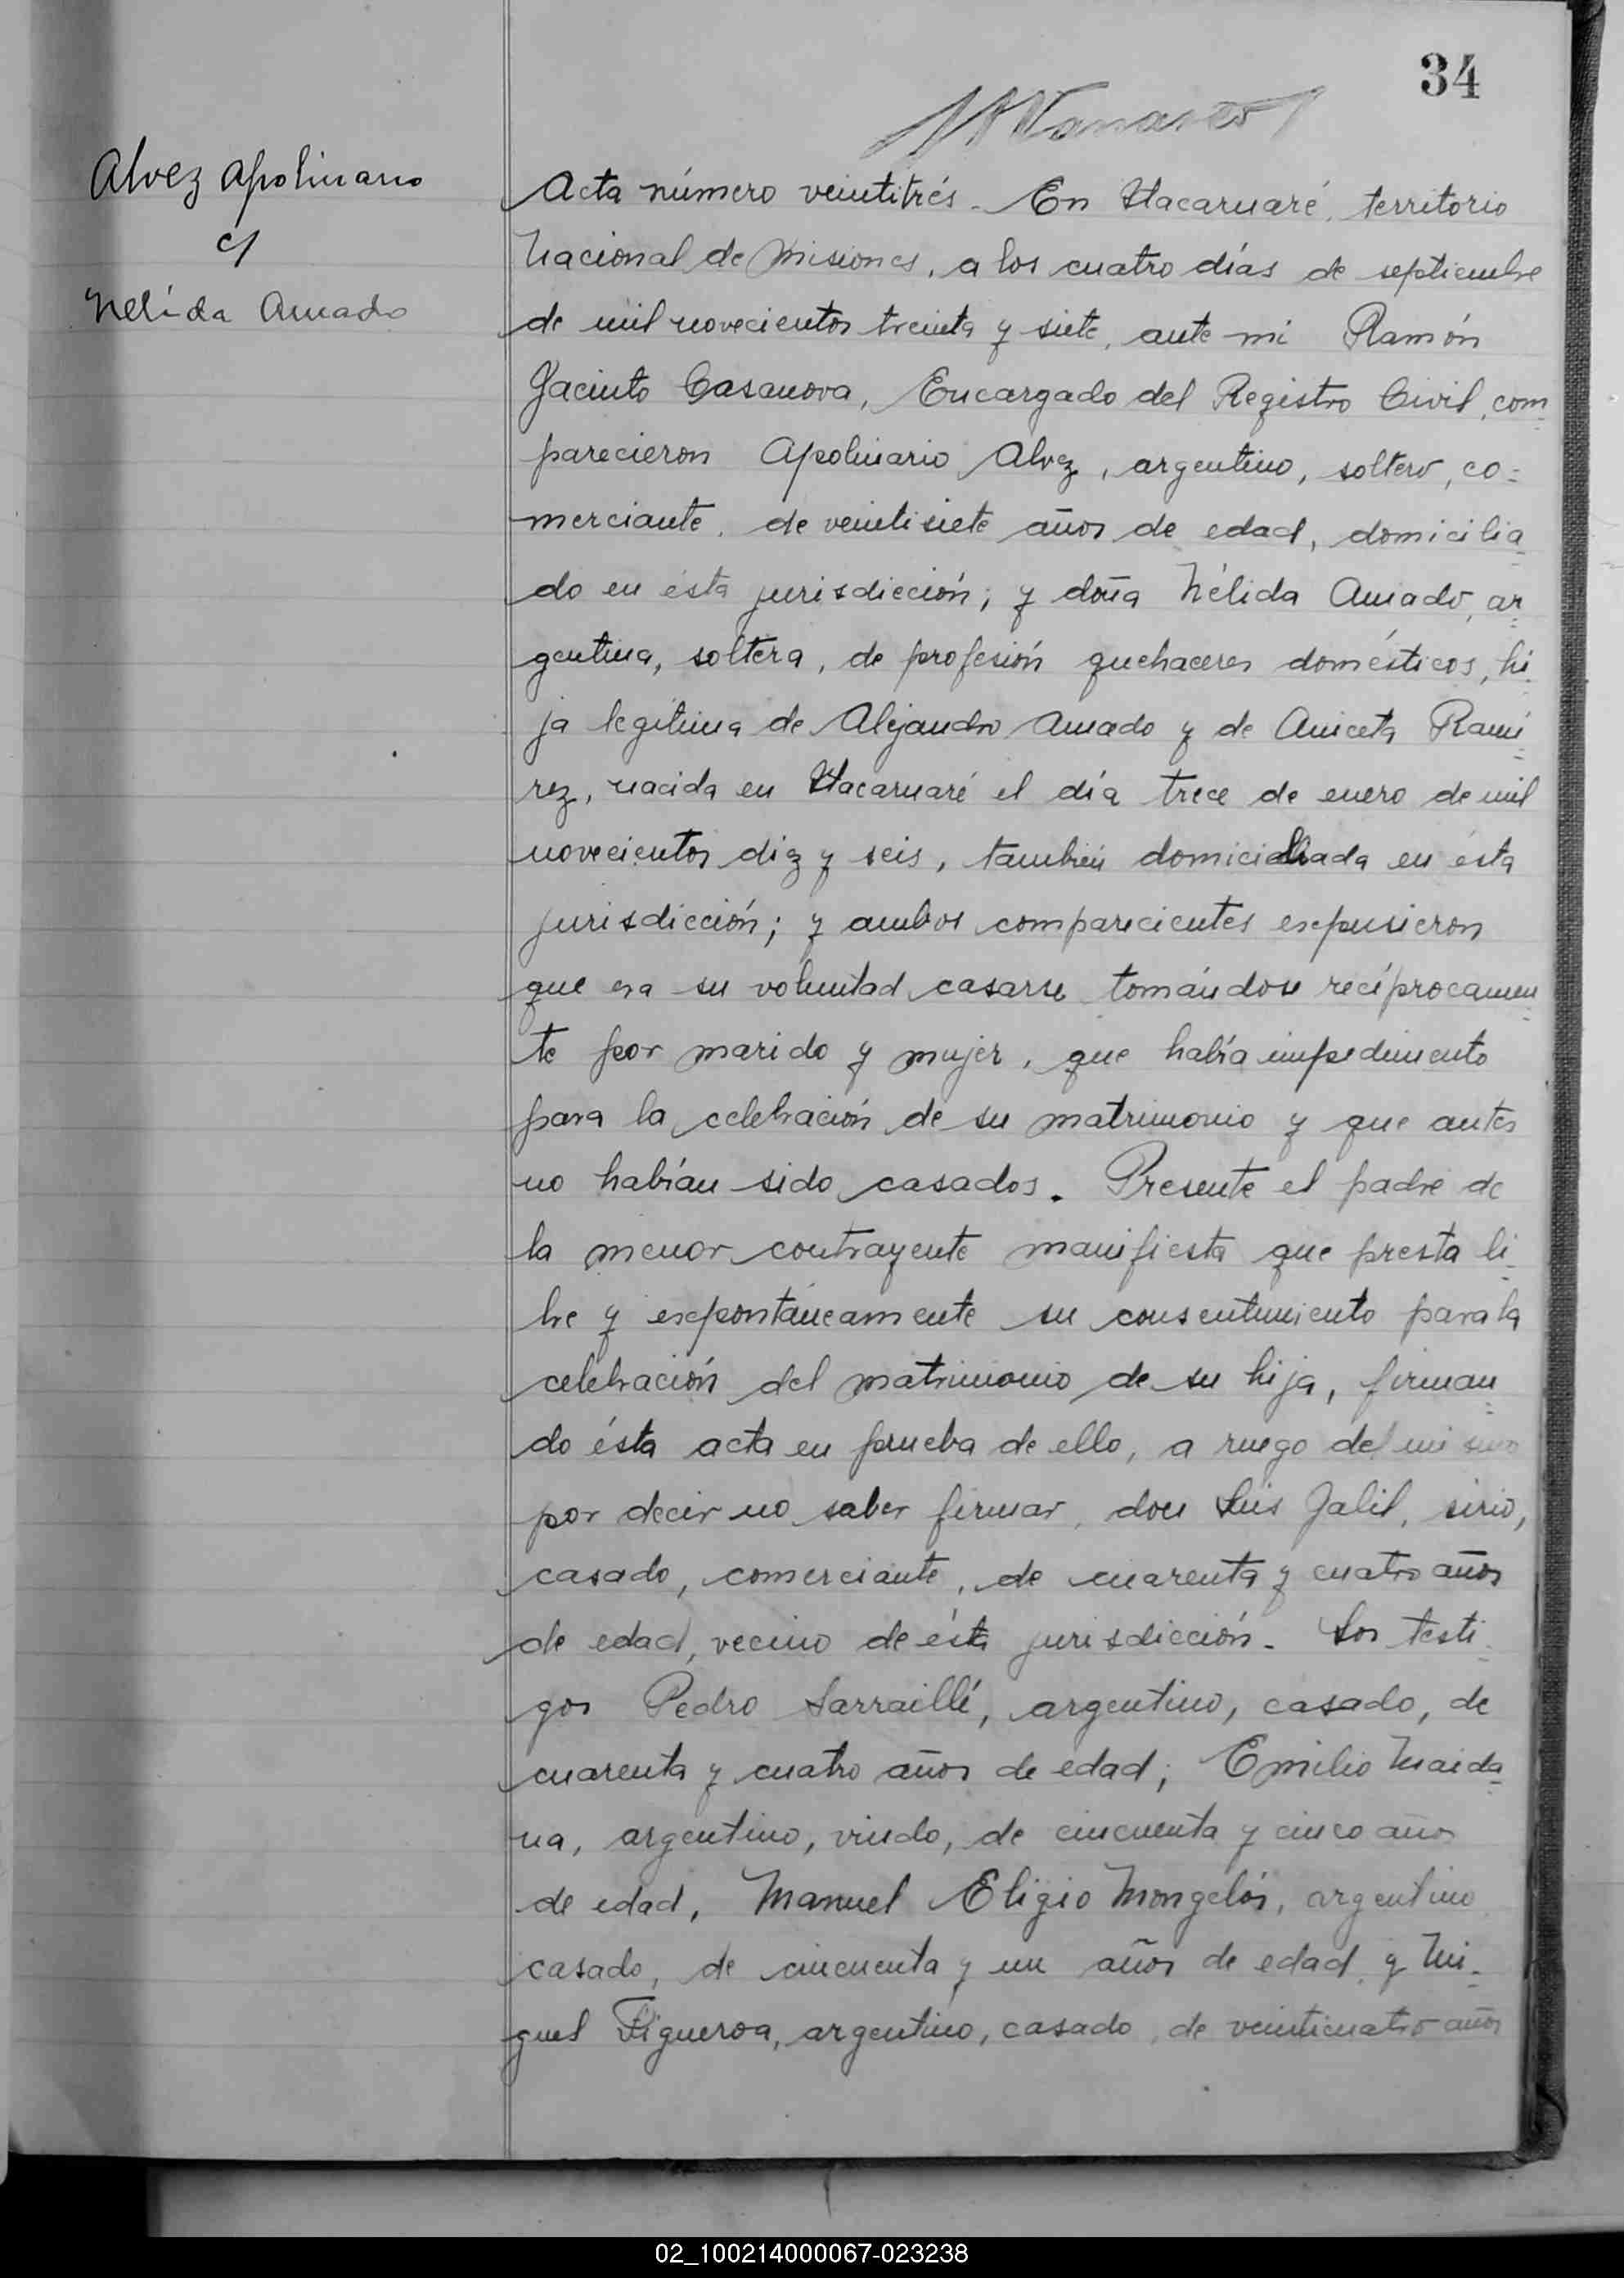 34
Alvez Apolinario
c/
Nélida Amado
Acta número veintitrés. En Itacaruaré, territorio
Nacional de Misiones, a los cuatro días de septiembre
de mil novecientos treinta y siete, ante mi Ramón
Jacinto Casanova, Encargado del Registro Civil, com=
parecieron Apolinario Alvez, argentino, soltero, co=
merciante, de veintisiete años de edad, domicilia=
do en ésta jurisdicción; y doña Nélida Amado, ar=
gentina, soltera, de profesión quehaceres domésticos, hi=
ja legítima de Alejandro Amado y de Aniceta Rami=
rez, nacida en Itacaruaré el día trece de enero de mil
novecientos diez y seis, también domiciliada en ésta
jurisdicción; y ambos comparecientes expusieron
que era su voluntad casarse tomándose recíprocamen=
te por marido y mujer, que había impedimento
para la celebración de su matrimonio y que antes
no habían sido casados. Presente el padre de
la menor contrayente manifiesta que presta li=
bre y expontáneamente su consentimiento para la
celebración del matrimonio de su hija, firman=
do ésta acta en prueba de ello, a ruego del mismo
por decir no saber firmar, don Luis Jalil, sirio,
casado, comerciante, de cuarenta y cuatro años
de edad, vecino de ésta jurisdicción. Los testi=
gos Pedro Larraillé, argentino, casado, de
cuarenta y cuatro años de edad; Emilio Maida=
na, argentino, viudo, de cincuenta y cinco años
de edad, Manuel Eligio Mongelós, argentino
casado, de cincuenta y un años de edad y Mi=
guel Figueroa, argentino, casado, de veinticuatro años
02_100214000067-023238